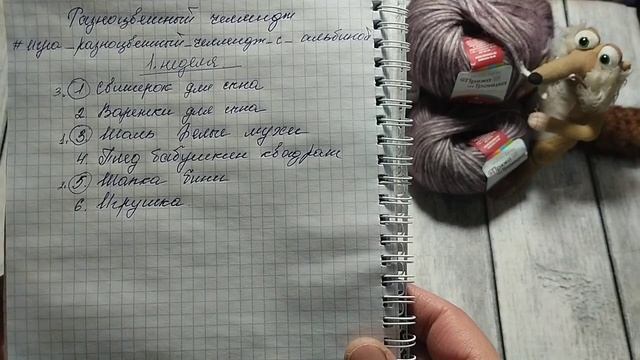 Разноцветный челлендж
#игра_разноцветный_челлендж_с_альбиной
1. неделя
3. ① Свитерок для сына
2 Варежки для сына
1. ③ Шаль Белые мухи
4. Плед бабушкин квадрат
2. ⑤ Шапка бини
6. Игрушка
Пряжа
из Троицка
Пряжа